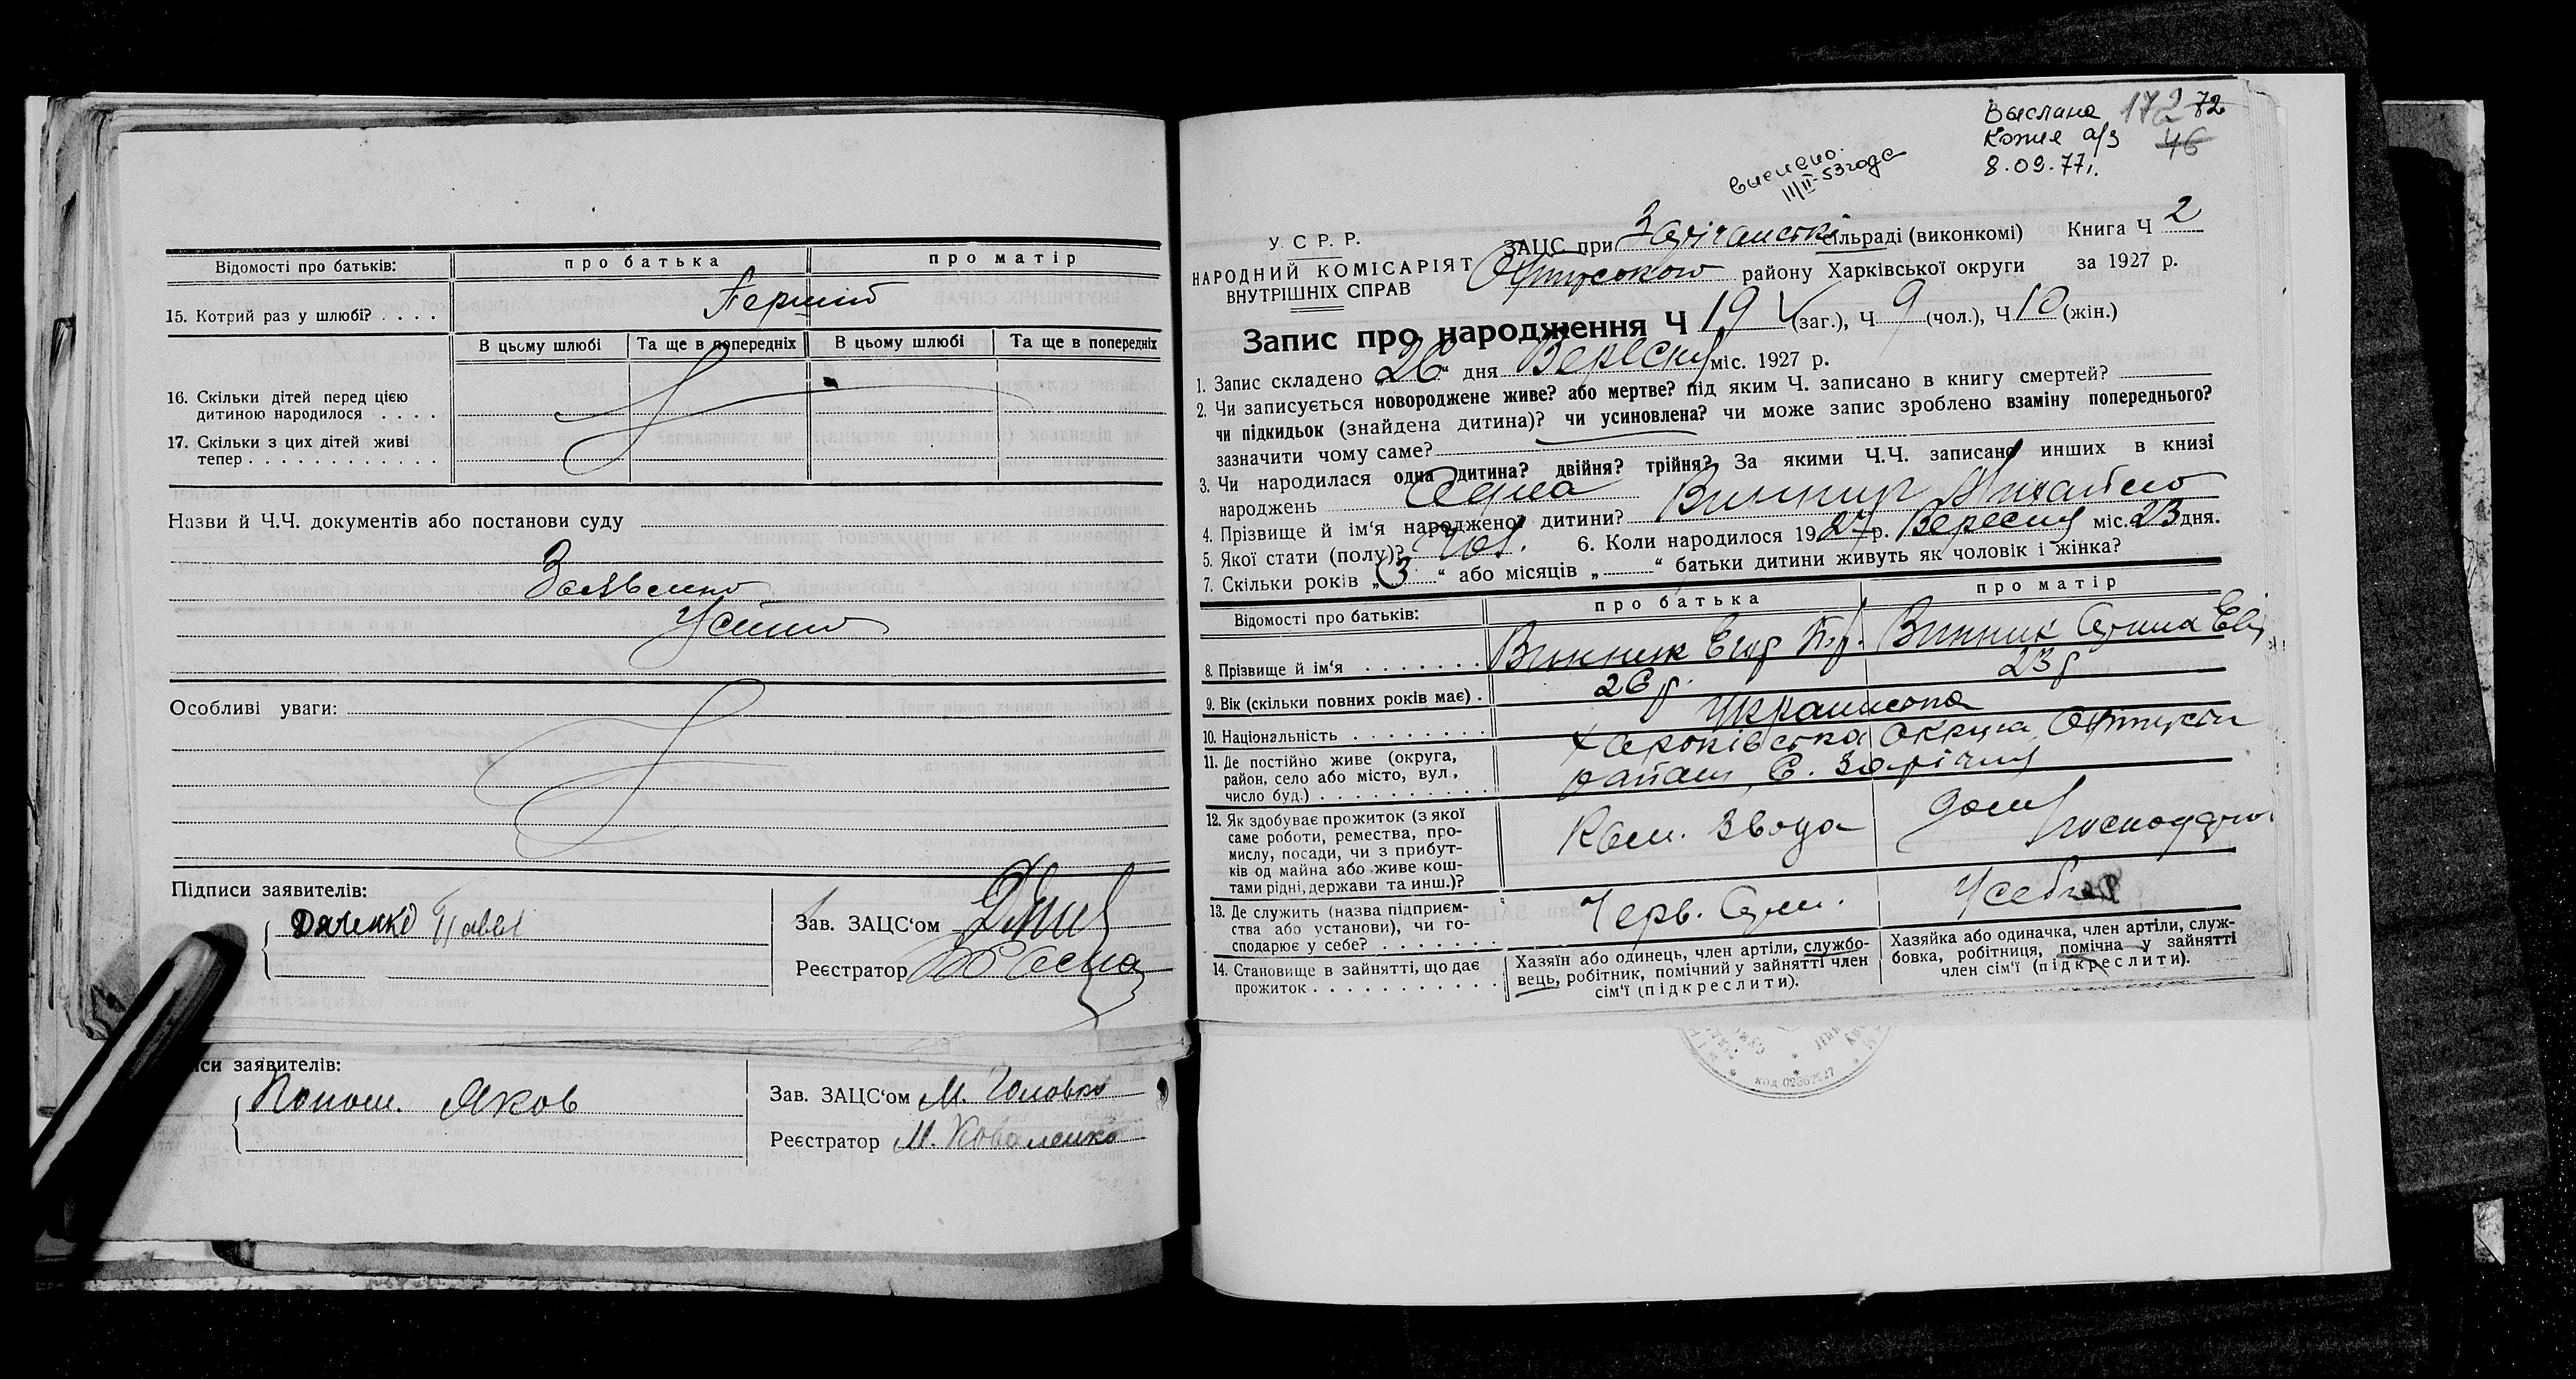 Відомості про батьків: про батька про матір
15. Котрий раз у шлюбі? . . . . Перший
В цьому шлюбі Та ще в попередніх В цьому шлюбі Та ще в попередніх
16. Скільки дітей перед цією
дитиною народилося . . . .
17. Скільки з цих дітей живі
тепер . . . . . . . . . . . .
Назви й Ч.Ч. документів або постанови суду
Заявлено
Усінно
Особливі уваги:
Підписи заявителів:
Дяченко Павел
Зав. ЗАЦС‘ом
Реєстратор
иси заявителів:
Яков
Зав. ЗАЦС‘ом М. Головко
Реєстратор М. Коваленко
Выслана 172 72
Копия а/з 46
8.09.77г.
выслано
11/II-53 года
У. С Р. Р.
НАРОДНИЙ КОМІСАРІЯТ
ВНУТРІШНІХ СПРАВ
ЗАЦС при сільраді (виконкомі) Книга Ч 2
району Харківської округи за 1927 р.
Запис про народження Ч 19 (заг.), Ч 9 (чол.), Ч 10 (жін.)
1. Запис складено „26“ дня Вересня міс. 1927 р.
2. Чи записується новороджене живе? або мертве? під яким Ч. записано в книгу смертей?
чи підкидьок (знайдена дитина)? чи усиновлена? чи може запис зроблено взаміну попереднього?
зазначити чому саме?
3. Чи народилася одна дитина? двійня? трійня? За якими Ч.Ч. записано инших в книзі
народжень Одна
4. Прізвище й ім‘я народженої дитини? Винник Михайло
5. Якої стати (полу)? Чол. 6. Коли народилося 1927 р. Вересня міс. 23 дня.
7. Скільки років „3“ або місяців „ “ батьки дитини живуть як чоловік і жінка?
Відомості про батьків: про батька про матір
8. Прізвище й ім‘я . . . . . . . Винник Егор Винник
9. Вік (скільки повних років має) . 26 р. 23 р
10. Національність . . . . . . . .
11. Де постійно живе (округа,
район, село або місто, вул.,
число буд.) . . . . . . . . . . Харківська Округа
район, С. Зарічня
12. Як здобуває прожиток (з якої
саме роботи, ремества, про-
мислу, посади, чи з прибут-
ків од майна або живе кош-
тами рідні, держави та инш.)? Ком. Звода Дом
13. Де служить (назва підприєм-
ства або установи), чи го-
сподарює у себе? . . . . . . . Черв. Арм. У себе
14. Становище в зайнятті, що дає
прожиток . . . . . . . . . . .
Хазяїн або одинець, член артіли, службо-
вець, робітник, помічний у зайнятті член
сім‘ї (підкреслити).
Хазяйка або одиначка, член артіли, служ-
бовка, робітниця, помічна у зайнятті
член сім‘ї (підкреслити).